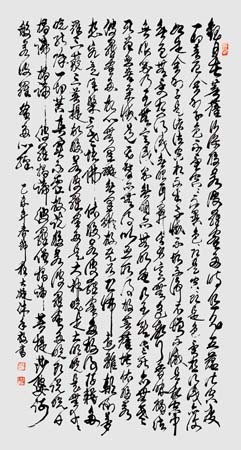 觀自在菩薩行深般若波羅蜜多時照見五蘊皆空度
一切苦厄舍利子色不異空空不異色色即是空空即是色受想行識亦復
如是舍利子是諸法空相不生不滅不垢不淨不增不減是故空中
無色無受想行識無眼耳鼻舌身意無色聲香味觸法
無眼界乃至無意識界無無明亦無無明盡乃至無老死亦無老
死盡無苦集滅道無智亦無得以無所得故菩提薩埵依般若
波羅蜜多故心無罣礙無罣礙故無有恐怖遠離顛倒夢
想究竟涅槃三世諸佛依般若波羅蜜多故得阿耨多
羅三藐三菩提故知般若波羅蜜多是大神咒是大明咒是無上咒是無等等
咒能除一切苦真實不虛故說般若波羅蜜多咒即說咒曰
揭諦揭諦波羅揭諦波羅僧揭諦菩提薩婆訶
般若波羅蜜多心經